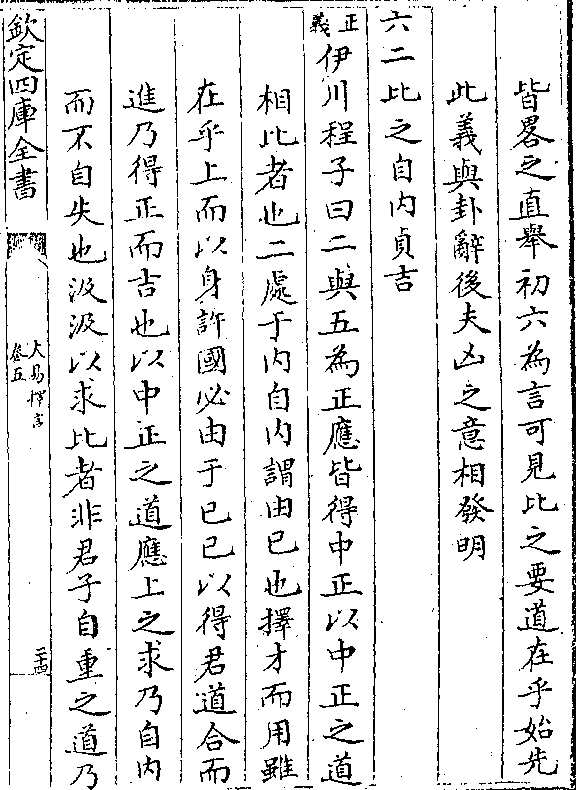 皆畧之直舉初六為言可見比之要道在乎始先
此義與卦辭後夫凶之意相發明
六二比之自内貞吉
正義伊川程子曰二與五為正應皆得中正以中正之道
相比者也二處于内自内謂由已也擇才而用雖
在乎上而以身許國必由于已已以得君道合而
進乃得正而吉也以中正之道應上之求乃自内
而不自失也汲汲以求比者非君子自重之道乃
欽定四庫全書
大易擇言
卷五
二十四